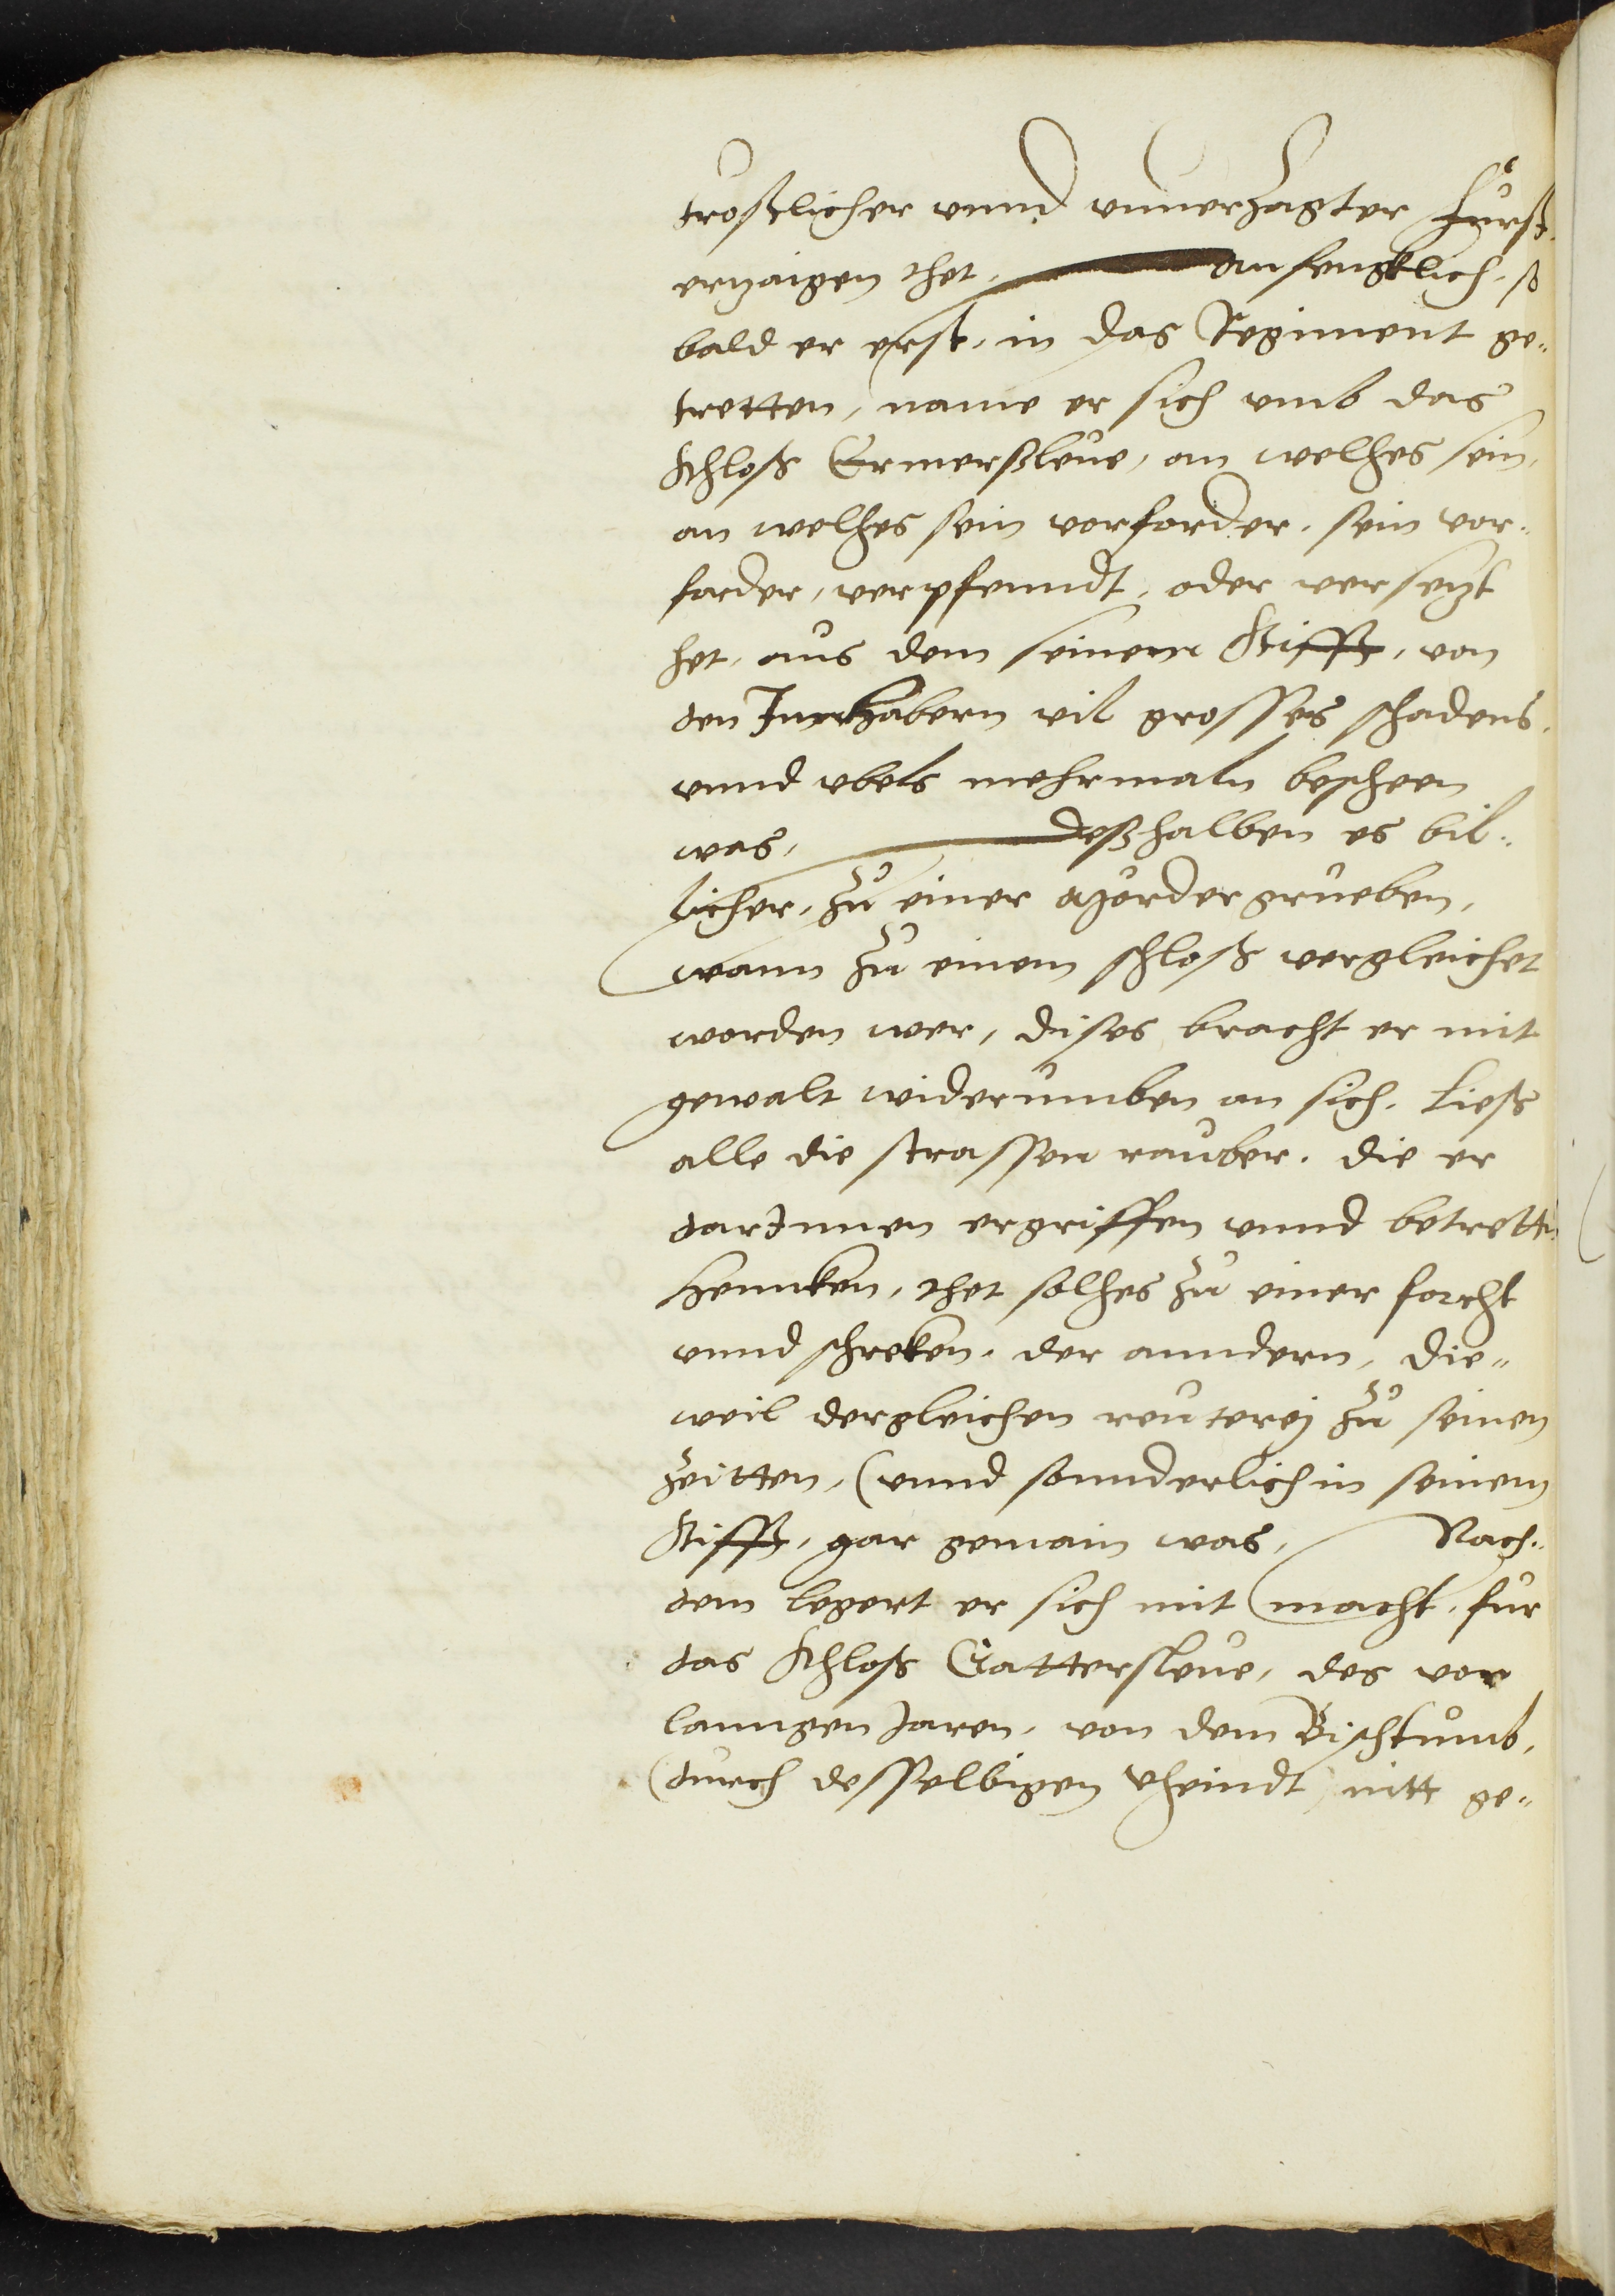 trostlicher vnnd vnuerzagter Fürst,
erzaigen thet, anfengklich, so
bald er erst, in das Regiment ge„
tretten, name er sich vmb das
Schloß Ermerßleue, an welhes sein,
an welhes sein vorforder, sein vor„
forder, verpfenndt, oder versetzt
het, aus dem seinem Stifft, von
den Innhabern vil grosses schadens,
vnnd vbels mehrmaln bescheen
was, deßhalben es bil„
licher, zu einer Mördergrueben,
wann zu einem schloß vergleichet
worden wer, dises bracht er mit
gewalt widerumben an sich, ließ
alle die strassen rauber, die er
darInnen ergriffen vnnd betretten
Hennken, thet solhes zu einer forcht
vnnd schreken, der anndern, die„
weil dergleichen reuterej zu seinen
zeitten, (vnnd sonnderlich in seinem
Stifft, gar gemain was, Nach„
dem legert er sich mit macht, fur
das Schloß Gattersleue, des vor
lanngen Jaren, von dem Bischtumb,
(durch desselbigen Vheindt, nitt ge„